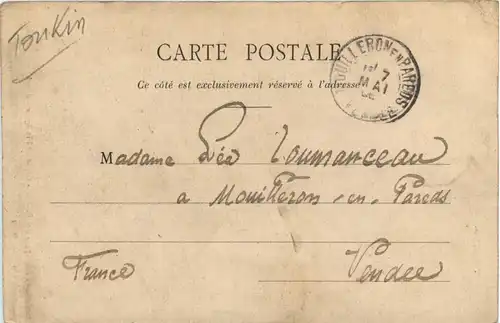 Tonkin
CARTE POSTALE
Ce côté est exclusivement réservé à l'adresse
MOUILLERON EN PAREDS
7
MAI
VENDEE
Madame Léa Toumanceau
a Mouilleron-en-Pareds
Vendee
France